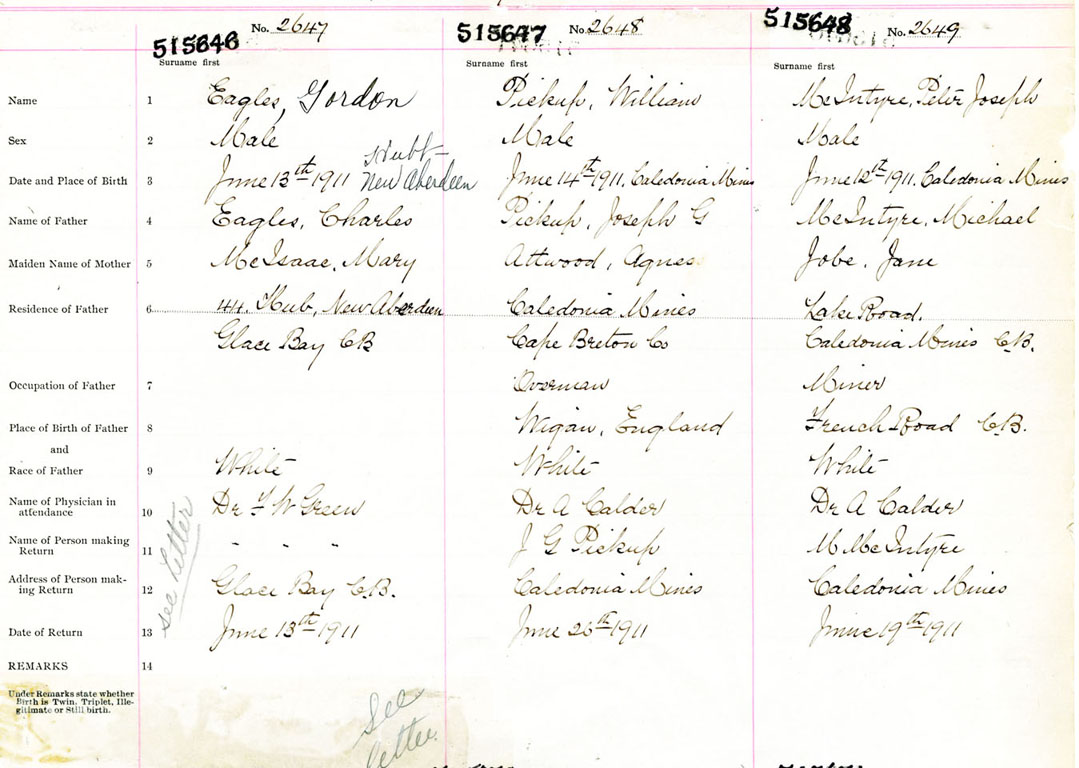 No. 2647 No. 2648 No. 2649
515646 515647 515648
Surname first Surname first Surname first
Name 1 Eagles, Gordon Pickup, William McIntyre, Peter Joseph
Sex 2 Male Male Male
Hubb
Date and Place of Birth 3 June 13th 1911 New Aberdeen June 14th 1911, Caledonia Mines June 12th 1911, Caledonia Mines
Name of Father 4 Eagles, Charles Pickup, Joseph G McIntyre, Michael
Maiden Name of Mother 5 McIsaac, Mary Attwood, Agnes Jobe, Jane
Residence of Father 6 44, Hub, New Aberdeen Caledonia Mines Lake Road,
Glace Bay CB Cape Breton Co Caledonia Mines C.B.
Occupation of Father 7 Overman Miner
Place of Birth of Father 8 Wigan, England French Road C.B.
and
Race of Father 9 White White White
Name of Physician in
attendance 10 Dr F W Green Dr A Calder Dr A Calder
Name of Person making
Return 11 " " " J G Pickup M McIntyre
Address of Person mak-
ing Return 12 Glace Bay C.B. Caledonia Mines Caledonia Mines
see letter
Date of Return 13 June 13th 1911 June 26th 1911 June 19th 1911
REMARKS 14
Under Remarks state whether
Birth is Twin, Triplet, Ille-
gitimate or Still birth.
See
letter